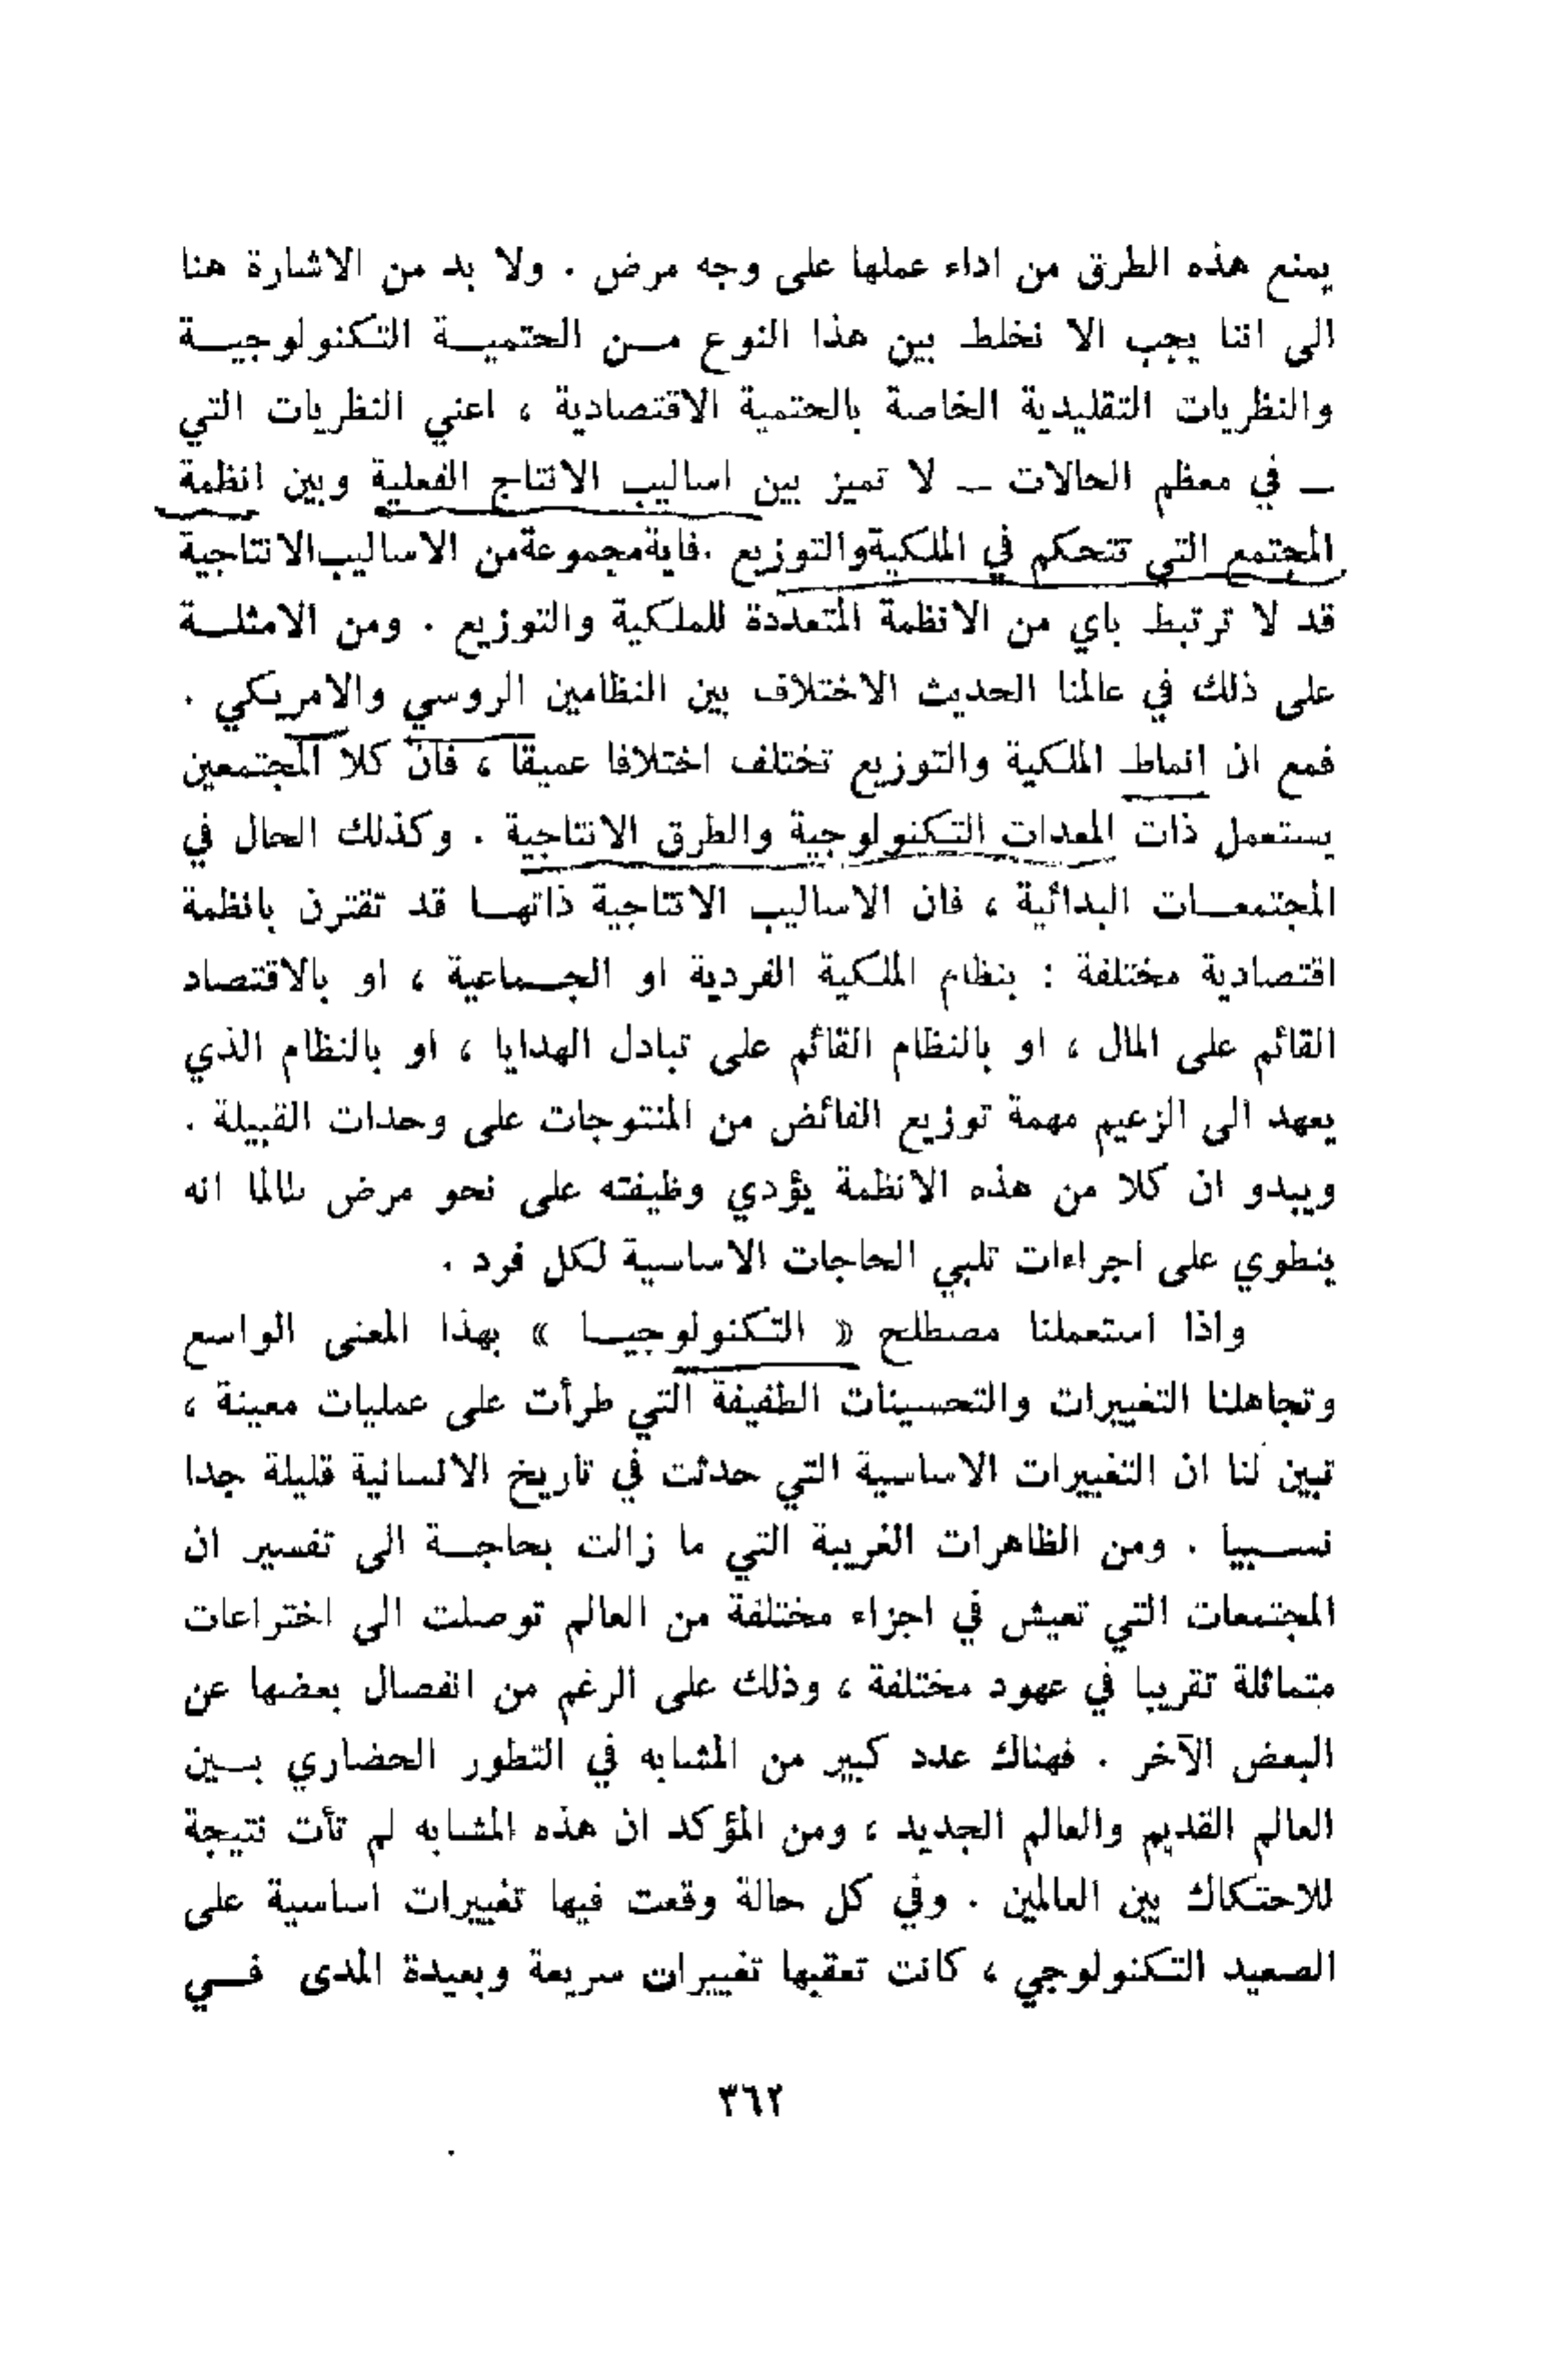 يمنع هذه الطرق من اداء عملها على وجه مرض . ولا بد من الاشارة هنا
الى اننا يجب الا نخلط بين هذا النوع مـن الحتميـة التكنولوجيـة
والنظريات التقليدية الخاصة بالحتمية الاقتصادية ، اعني النظريات التي
ـ في معظم الحالات ـ لا تميز بين اساليب الانتاج الفعلية وبين انظمة
المجتمع التي تتحكم في الملكية والتوزيع . فاية مجموعة من الاساليب الانتاجية
قد لا ترتبط باي من الانظمة المتعددة للملكية والتوزيع . ومن الامثلـة
على ذلك في عالمنا الحديث الاختلاف بين النظامين الروسي والامريكي .
فمع ان انماط الملكية والتوزيع تختلف اختلافا عميقا ، فان كلا المجتمعين
يستعمل ذات المعدات التكنولوجية والطرق الانتاجية . وكذلك الحال في
المجتمعـات البدائية ، فان الاساليب الانتاجية ذاتهـا قد تقترن بانظمة
اقتصادية مختلفة : بنظام الملكية الفردية او الجـماعية ، او بالاقتصاد
القائم على المال ، او بالنظام القائم على تبادل الهدايا ، او بالنظام الذي
يعهد الى الزعيم مهمة توزيع الفائض من المنتوجات على وحدات القبيلة .
ويبدو ان كلا من هذه الانظمة يؤدي وظيفته على نحو مرض طالما انه
ينطوي على اجراءات تلبي الحاجات الاساسية لكل فرد .
واذا استعملنا مصطلح « التكنولوجيـا » بهذا المعنى الواسع
وتجاهلنا التغييرات والتحسينات الطفيفة التي طرأت على عمليات معينة ،
تبين لنا ان التغييرات الاساسية التي حدثت في تاريخ الانسانية قليلة جدا
نسـبيا . ومن الظاهرات الغريبة التي ما زالت بحاجـة الى تفسير ان
المجتمعات التي تعيش في اجزاء مختلفة من العالم توصلت الى اختراعات
متماثلة تقريبا في عهود مختلفة ، وذلك على الرغم من انفصال بعضها عن
البعض الآخر . فهناك عدد كبير من المشابه في التطور الحضاري بـين
العالم القديم والعالم الجديد ، ومن المؤكد ان هذه المشابه لم تأت نتيجة
للاحتكاك بين العالمين . وفي كل حالة وقعت فيها تغييرات اساسية على
الصعيد التكنولوجي ، كانت تعقبها تغييرات سريعة وبعيدة المدى فـي
٣٦٢